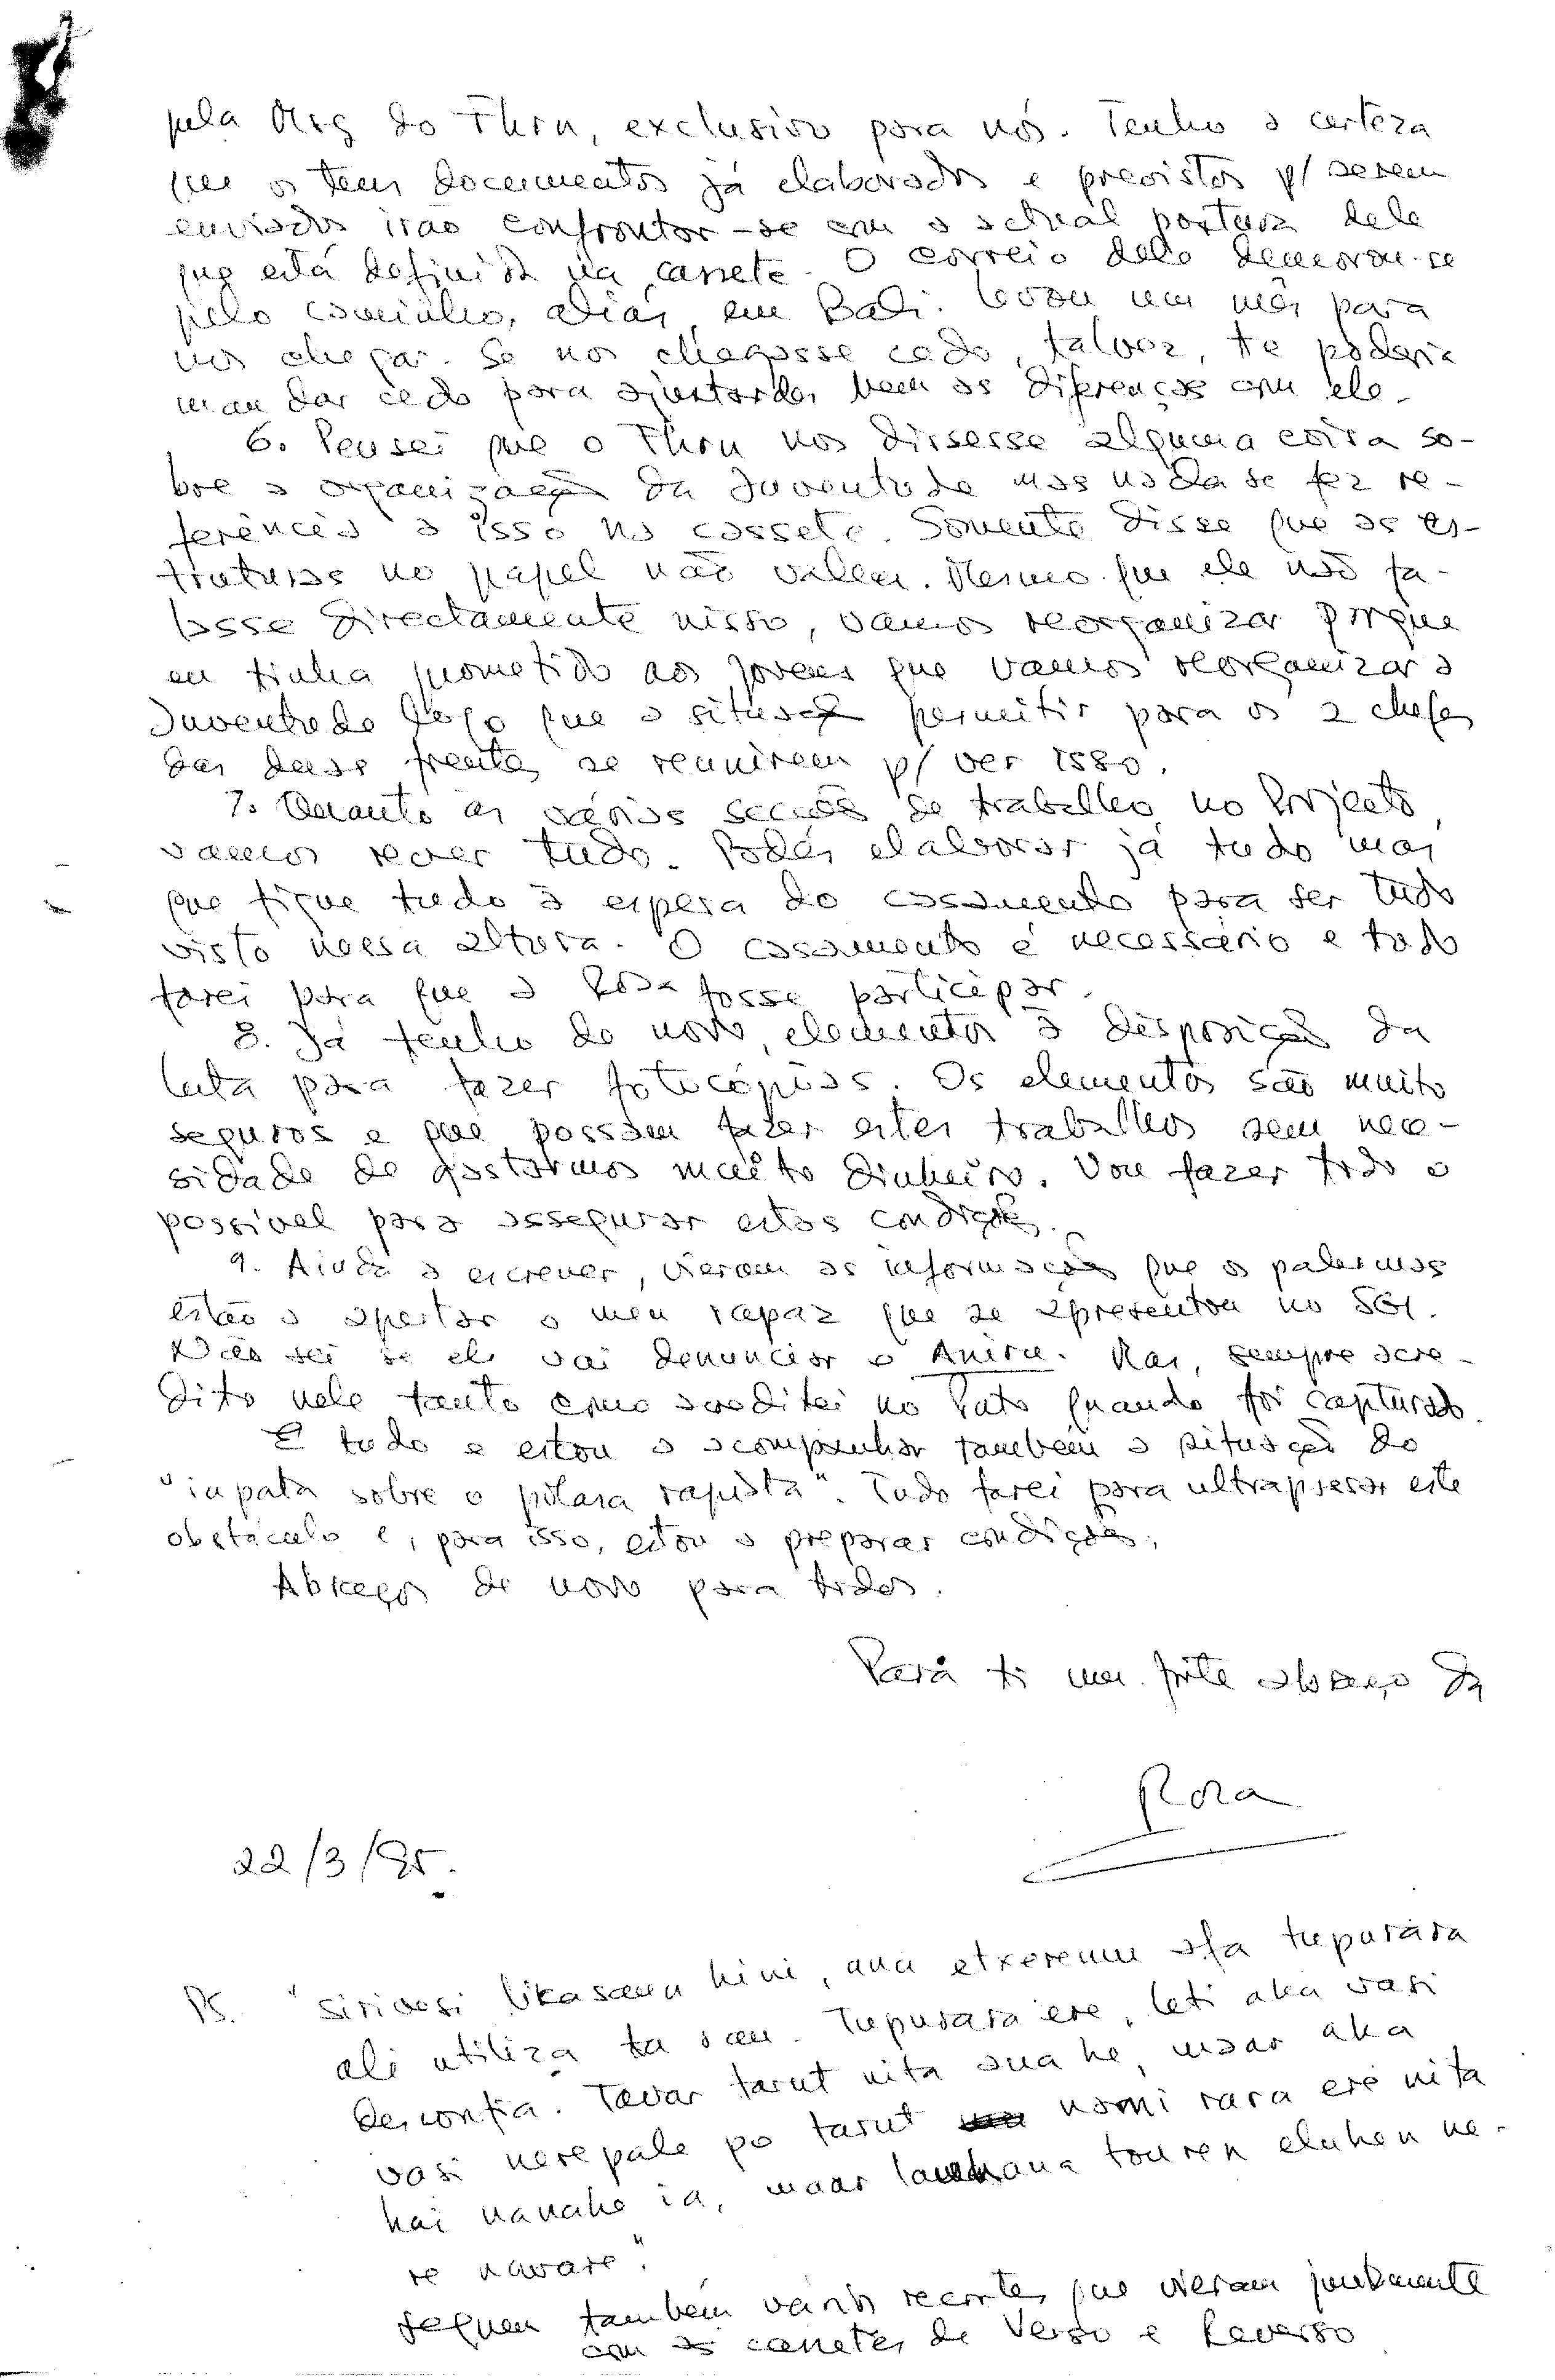 pela Msg do Thrn, exclusivo para nós. Tenho a certeza
que os teus documentos já elaborados e previstos p/ serem
enviados irão confrontar-se com a actual postura dele
que está definida na cassete. O correio dele demorou-se
pelo caminho, aliás, em Bali. Levou um mês para
nos chegar. Se nos chegasse cedo, talvez, te poderia
mandar cedo para ajustardes bem as diferenças com ele.
6. Pensei que o Thrn nos dissesse alguma coisa so-
bre a organização da Juventude mas nada se fez re-
ferência a isso na cassete. Somente disse que as es-
truturas no papel não valem. Mesmo que ele não fa-
lasse directamente nisso, vamos reorganizar porque
eu tinha prometido aos jovens que vamos reorganizar a
Juventude logo que a situação permitir para os 2 chefes
das duas frentes se reunirem p/ ver isso.
7. Quanto às várias secções de trabalho no Projecto,
vamos rever tudo. Podes elaborar já tudo mas
que fique tudo à espera do casamento para ser tudo
visto nessa altura. O casamento é necessário e tudo
farei para que a Rosa fosse participar.
8. Já tenho de novo, elementos à disposição da
luta para fazer fotocópias. Os elementos são muito
seguros e que possam fazer estes trabalhos sem nece-
sidade de gastarmos muito dinheiro. Vou fazer todo o
possível para assegurar estas condições.
9. Ainda a escrever, vieram as informações que os palermas
estão a apertar o meu rapaz que se apresentou no SGI.
Não sei se ele vai denunciar o Anise. Mas, sempre acre-
dito nele tanto como acreditei no Pato quando foi capturado.
É tudo e estou a acompanhar também a situação do
"inpata sobre o pilara rapista". Tudo farei para ultrapassar este
obstáculo e, para isso, estou a preparar condições.
Abraços de novo para todos.
Para ti um forte abraço da
Rosa
22/3/95.
PS. "Sirivasi likasaun hini, ana etxerenu afa tupurara
ali utiliza ta sau. Tupurara ere, leti aka vasi
desconfia. Tavar tarut nita ana he, maar aka
vasi nere pale po tarut nami rara ere nita
hai nanahe ia, maar lauhana touren eluhen ne-
re navare".
Seguem também vários recortes que vieram juntamente
com as cassetes de Verso e Reverso